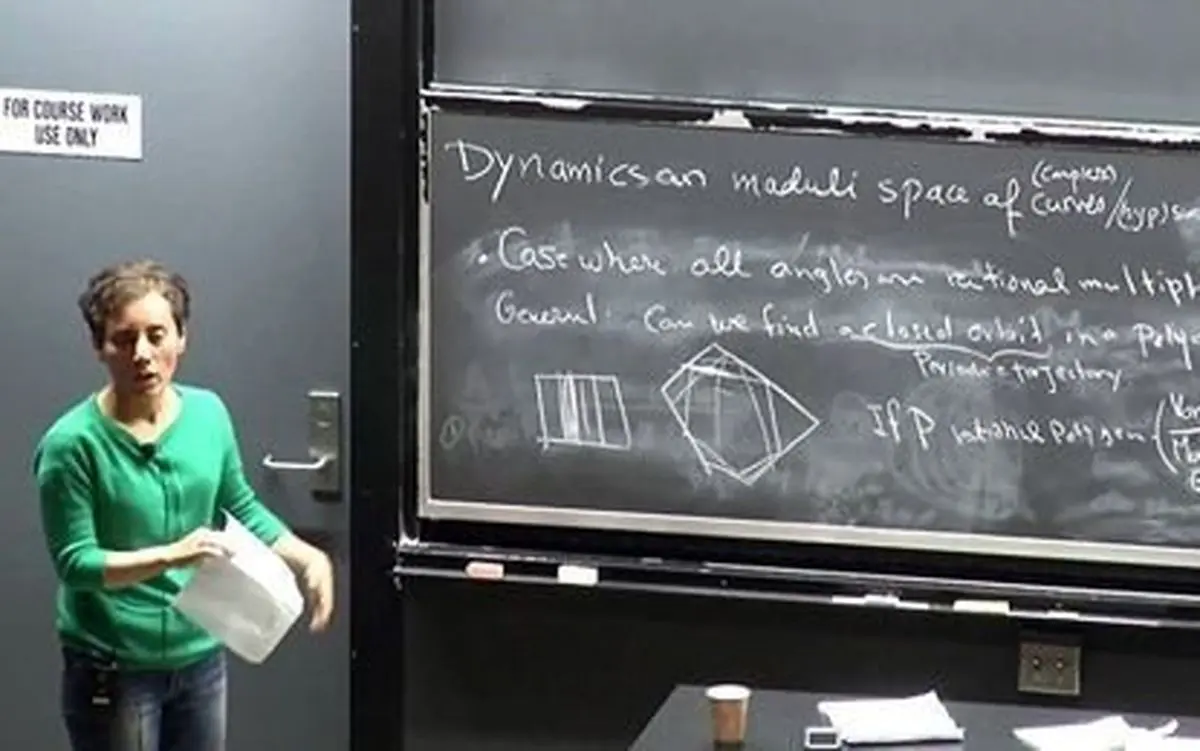 FOR COURSE WORK
USE ONLY
Dynamics on moduli space of (complex) curves/hyp) su
• Case where all angles are rational multipl
General: Can we find a closed orbit in a Polyg
Periodic trajectory
If P rational polygon